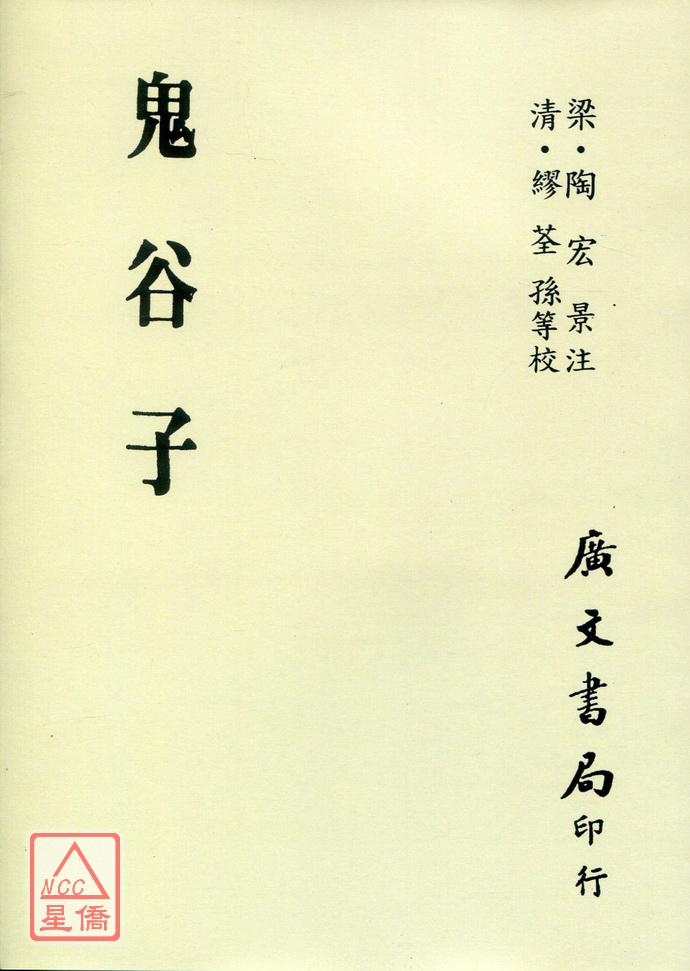 梁・陶宏景注
清・繆荃孫等校
鬼谷子
廣文書局印行
NCC
星僑